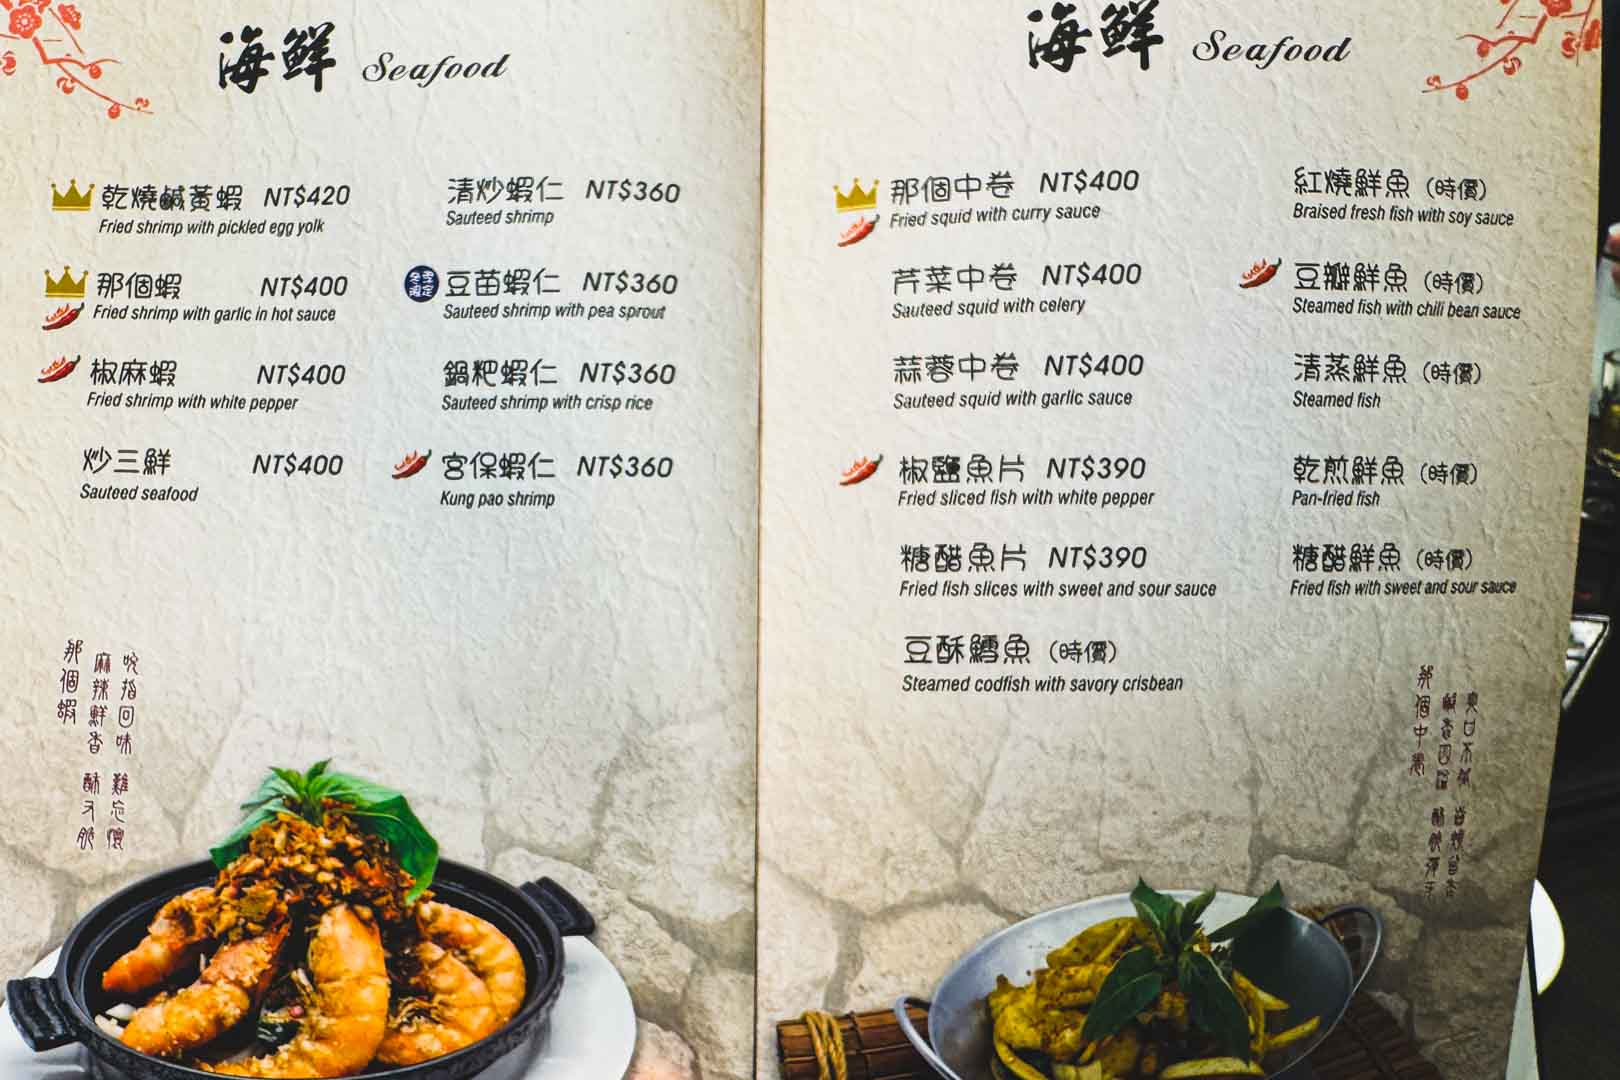 海鮮 Seafood
乾燒鹹黃蝦 NT$420
Fried shrimp with pickled egg yolk
那個蝦 NT$400
Fried shrimp with garlic in hot sauce
椒麻蝦 NT$400
Fried shrimp with white pepper
炒三鮮 NT$400
Sauteed seafood
清炒蝦仁 NT$360
Sauteed shrimp
冬季限定
豆苗蝦仁 NT$360
Sauteed shrimp with pea sprout
鍋粑蝦仁 NT$360
Sauteed shrimp with crisp rice
宮保蝦仁 NT$360
Kung pao shrimp
吮指回味 難忘懷
麻辣鮮香 酥又脆
那個蝦
海鮮 Seafood
那個中卷 NT$400
Fried squid with curry sauce
芹菜中卷 NT$400
Sauteed squid with celery
蒜蓉中卷 NT$400
Sauteed squid with garlic sauce
椒鹽魚片 NT$390
Fried sliced fish with white pepper
糖醋魚片 NT$390
Fried fish slices with sweet and sour sauce
豆酥鱈魚 (時價)
Steamed codfish with savory crisbean
紅燒鮮魚 (時價)
Braised fresh fish with soy sauce
豆瓣鮮魚 (時價)
Steamed fish with chili bean sauce
清蒸鮮魚 (時價)
Steamed fish
乾煎鮮魚 (時價)
Pan-fried fish
糖醋鮮魚 (時價)
Fried fish with sweet and sour sauce
爽口不膩
鹹香四溢
那個中卷